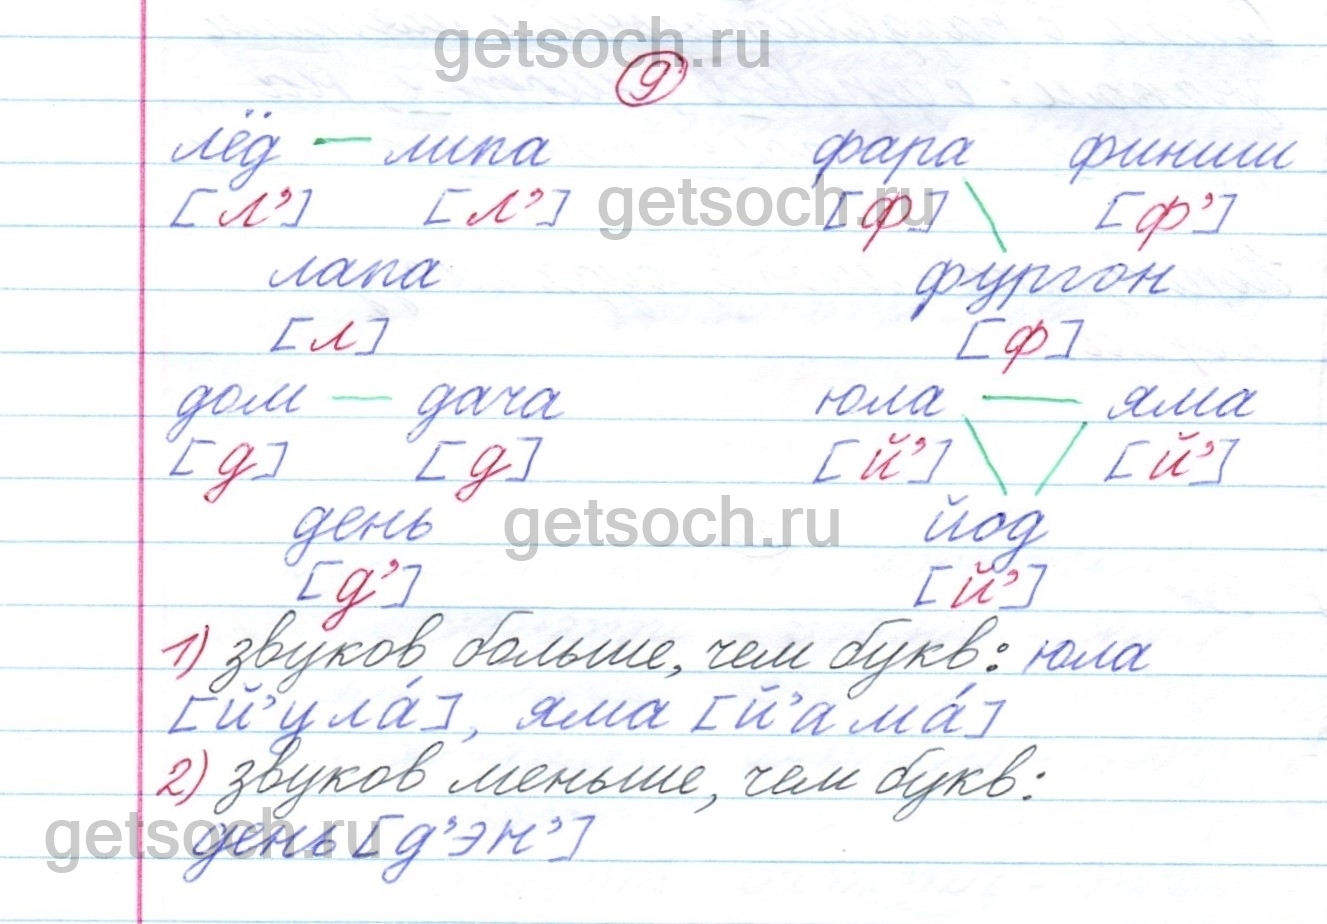 getsoch.ru
9
лёд — липа фара финиш
[л’] [л’] getsoch.ru [ф] [ф’]
лапа фургон
[л] [ф]
дом — дача юла — яма
[д] [д] [й’] [й’]
день getsoch.ru йод
[д’] [й’]
1) звуков больше, чем букв: юла
[й’ула́], яма [й’ама́]
2) звуков меньше, чем букв:
getsoch.ru
день [д’эн’]